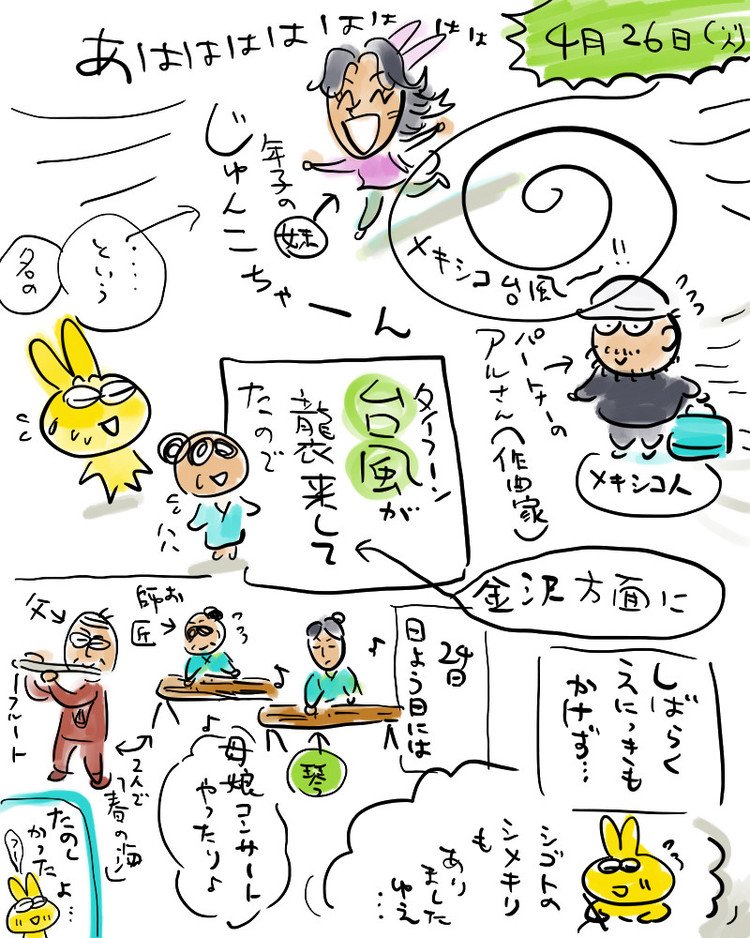 4月26日(火)
あははははははははは
じゅんこちゃーん
年子の
妹
……
という
名の
メキシコ台風〜!!
パートナーの
アルさん(作曲家)
メキシコ人
タイフーン
台風が
襲来して
たので
金沢方面に
しばらく
えにっきも
かけず…
24日
日よう日には
お師匠
琴
父
フルート
2人で
「春の海」
母娘コンサート
やったり♪
シゴトの
シメキリ
も
ありました
ゆえ
…
たのし
かったよ…